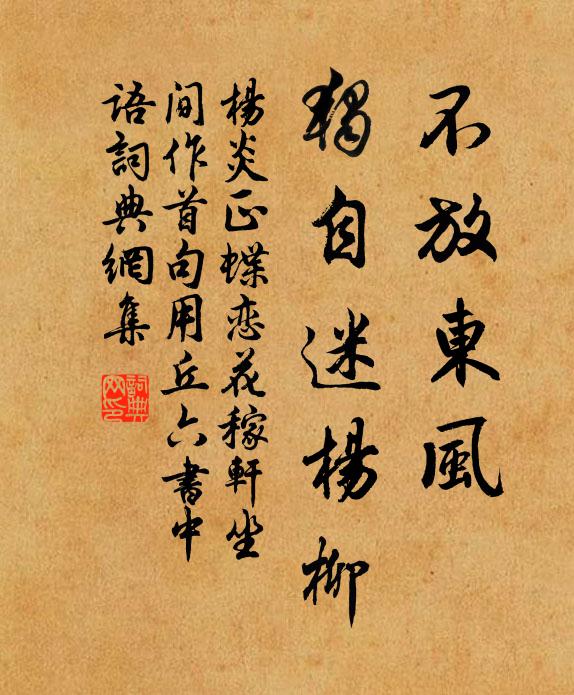 不放東風
獨自迷楊柳
楊炎正蝶恋花稼軒坐
间作首句用丘六書中
语詞典網集
詞典网印